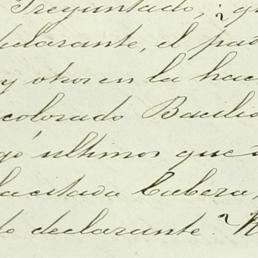 Preguntado, ¿
declarante, el
y otros en la hac
colorado Basilio
últimos que
la citada Cabera,
declarante. ¿